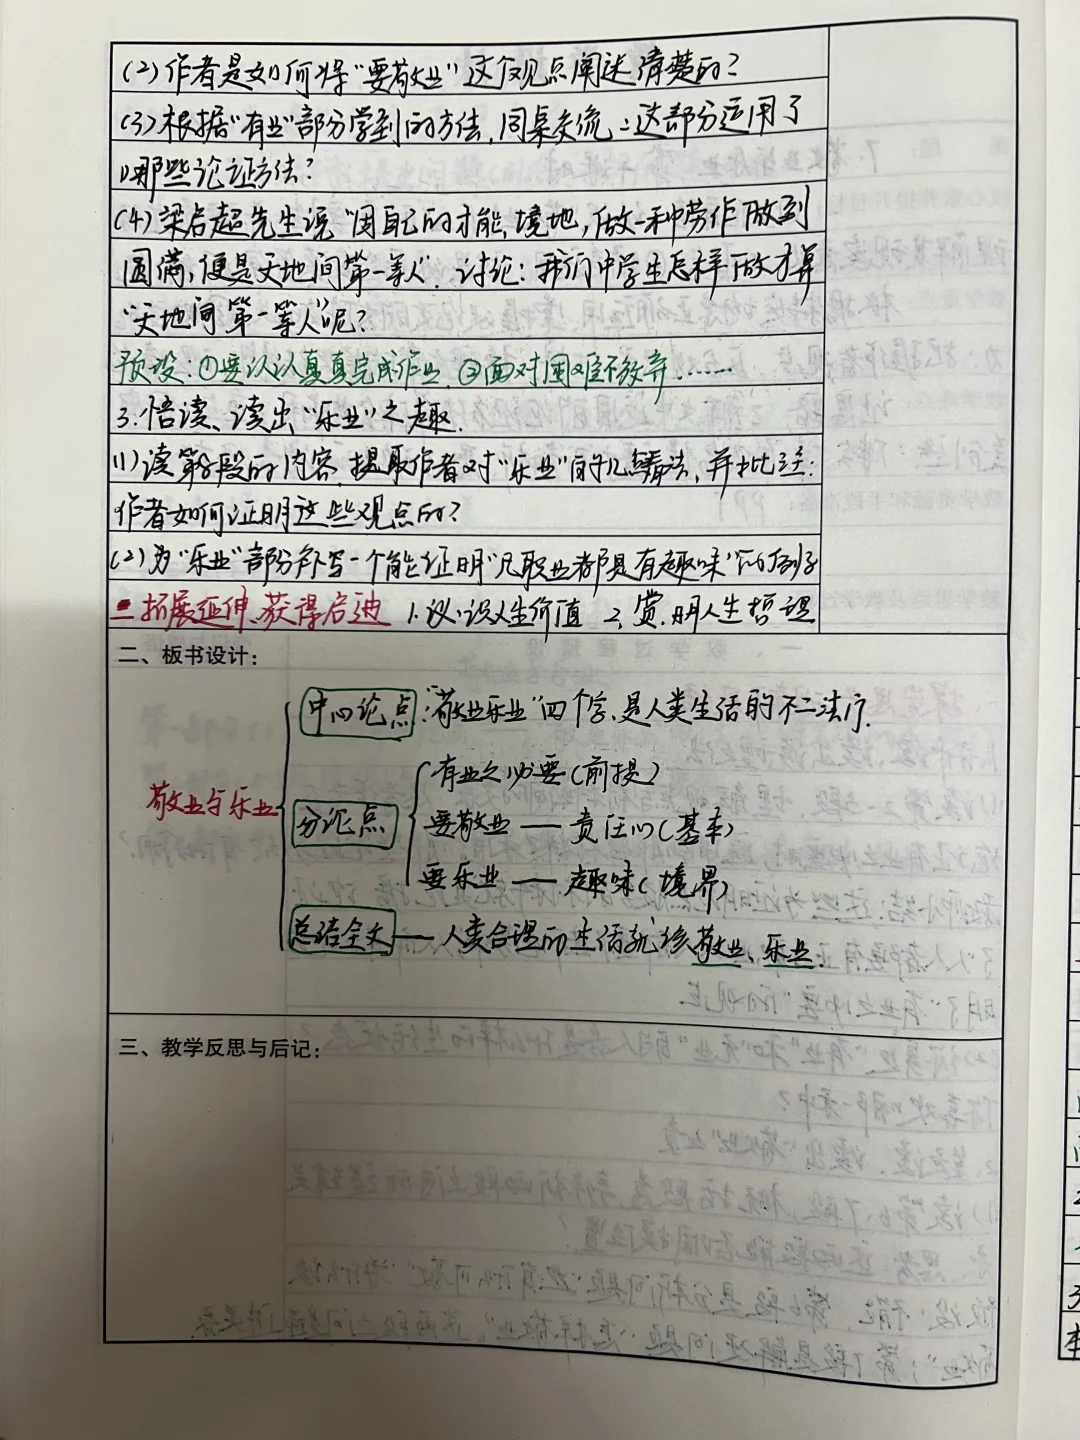 (2)作者是如何将“要敬业”这个观点阐述清楚的?
(3)根据“有业”部分学到的方法,同桌交流:这部分运用了
哪些论证方法?
(4)梁启超先生说“因自己的才能、境地,做一种劳作做到
圆满,便是天地间第一等人”.讨论:我们中学生怎样做才算
“天地间第一等人”呢?
预设:①要认认真真完成作业 ②面对困难不放弃……
3.悟读、读出“乐业”之趣.
(1)读第8段的内容,提取作者对“乐业”的几点看法,并批注:
作者如何证明这些观点的?
(2)为“乐业”部分补写一个能证明“凡职业都是有趣味”的例子
三拓展延伸、获得启迪 1.议.议人生价值 2.赏.明人生哲理
二、板书设计:
中心论点:“敬业乐业”四个字,是人类生活的不二法门.
有业之必要(前提)
敬业与乐业
分论点
要敬业——责任心(基本)
要乐业——趣味(境界)
总结全文——人类合理的生活就该敬业、乐业.
三、教学反思与后记: